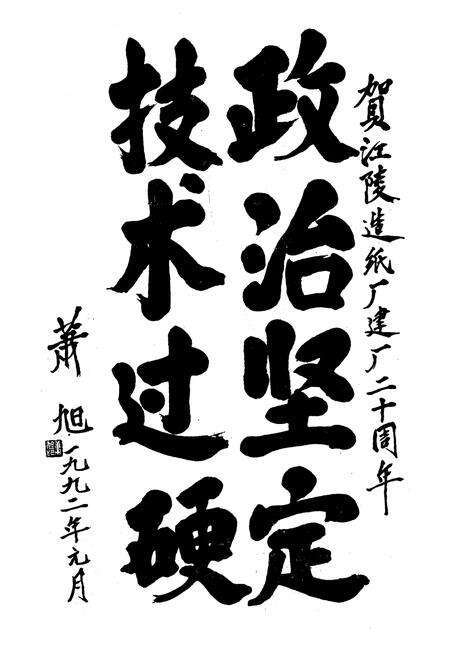 贺江陵造纸厂建厂二十周年
政治坚定
技术过硬
萧旭
一九九二年元月